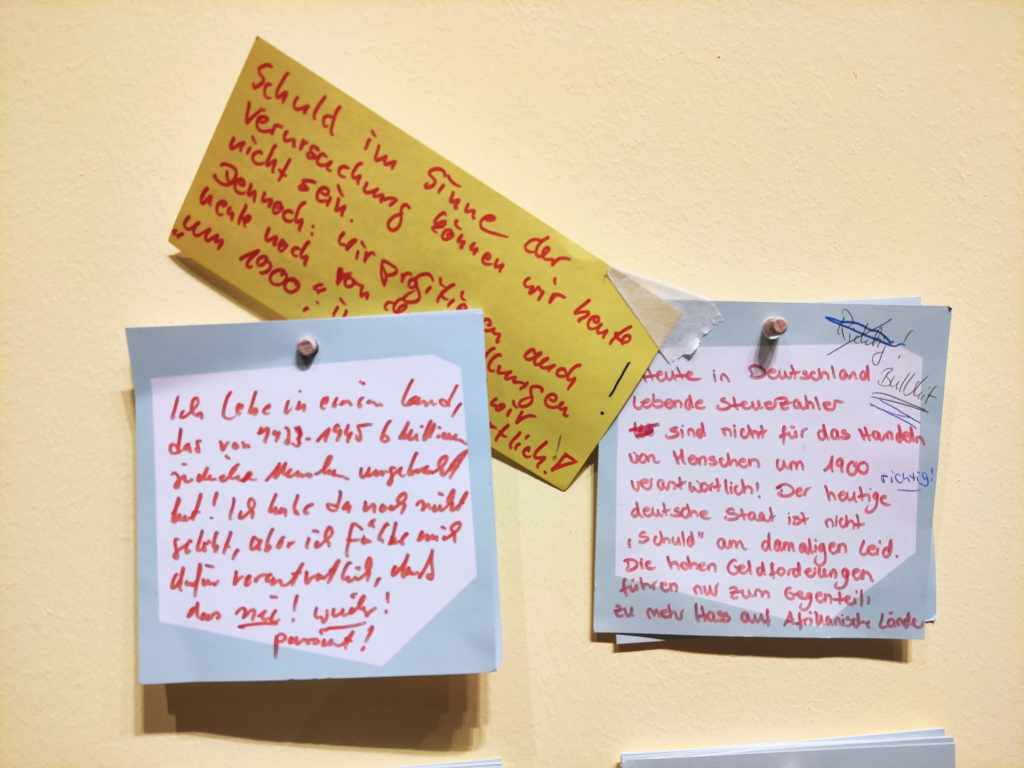 Schuld im Sinne der
Verursachung können wir heute
nicht sein.
Dennoch: wir
heute noch von
"um 1900";
auch
wir
!
Ich lebe in einem Land,
das von 1933-1945 6 Millionen
jüdische Menschen umgebracht
hat! Ich habe da noch nicht
gelebt, aber ich fühle mich
dafür verantwortlich, daß
das nie! wieder!
passiert!
Richtig!
Bullshit
Heute in Deutschland
lebende Steuerzahler
sind nicht für das Handeln
von Menschen um 1900
richtig!
verantwortlich! Der heutige
deutsche Staat ist nicht
"Schuld" am damaligen Leid.
Die hohen Geldforderungen
führen nur zum Gegenteil:
zu mehr Hass auf Afrikanische Länder